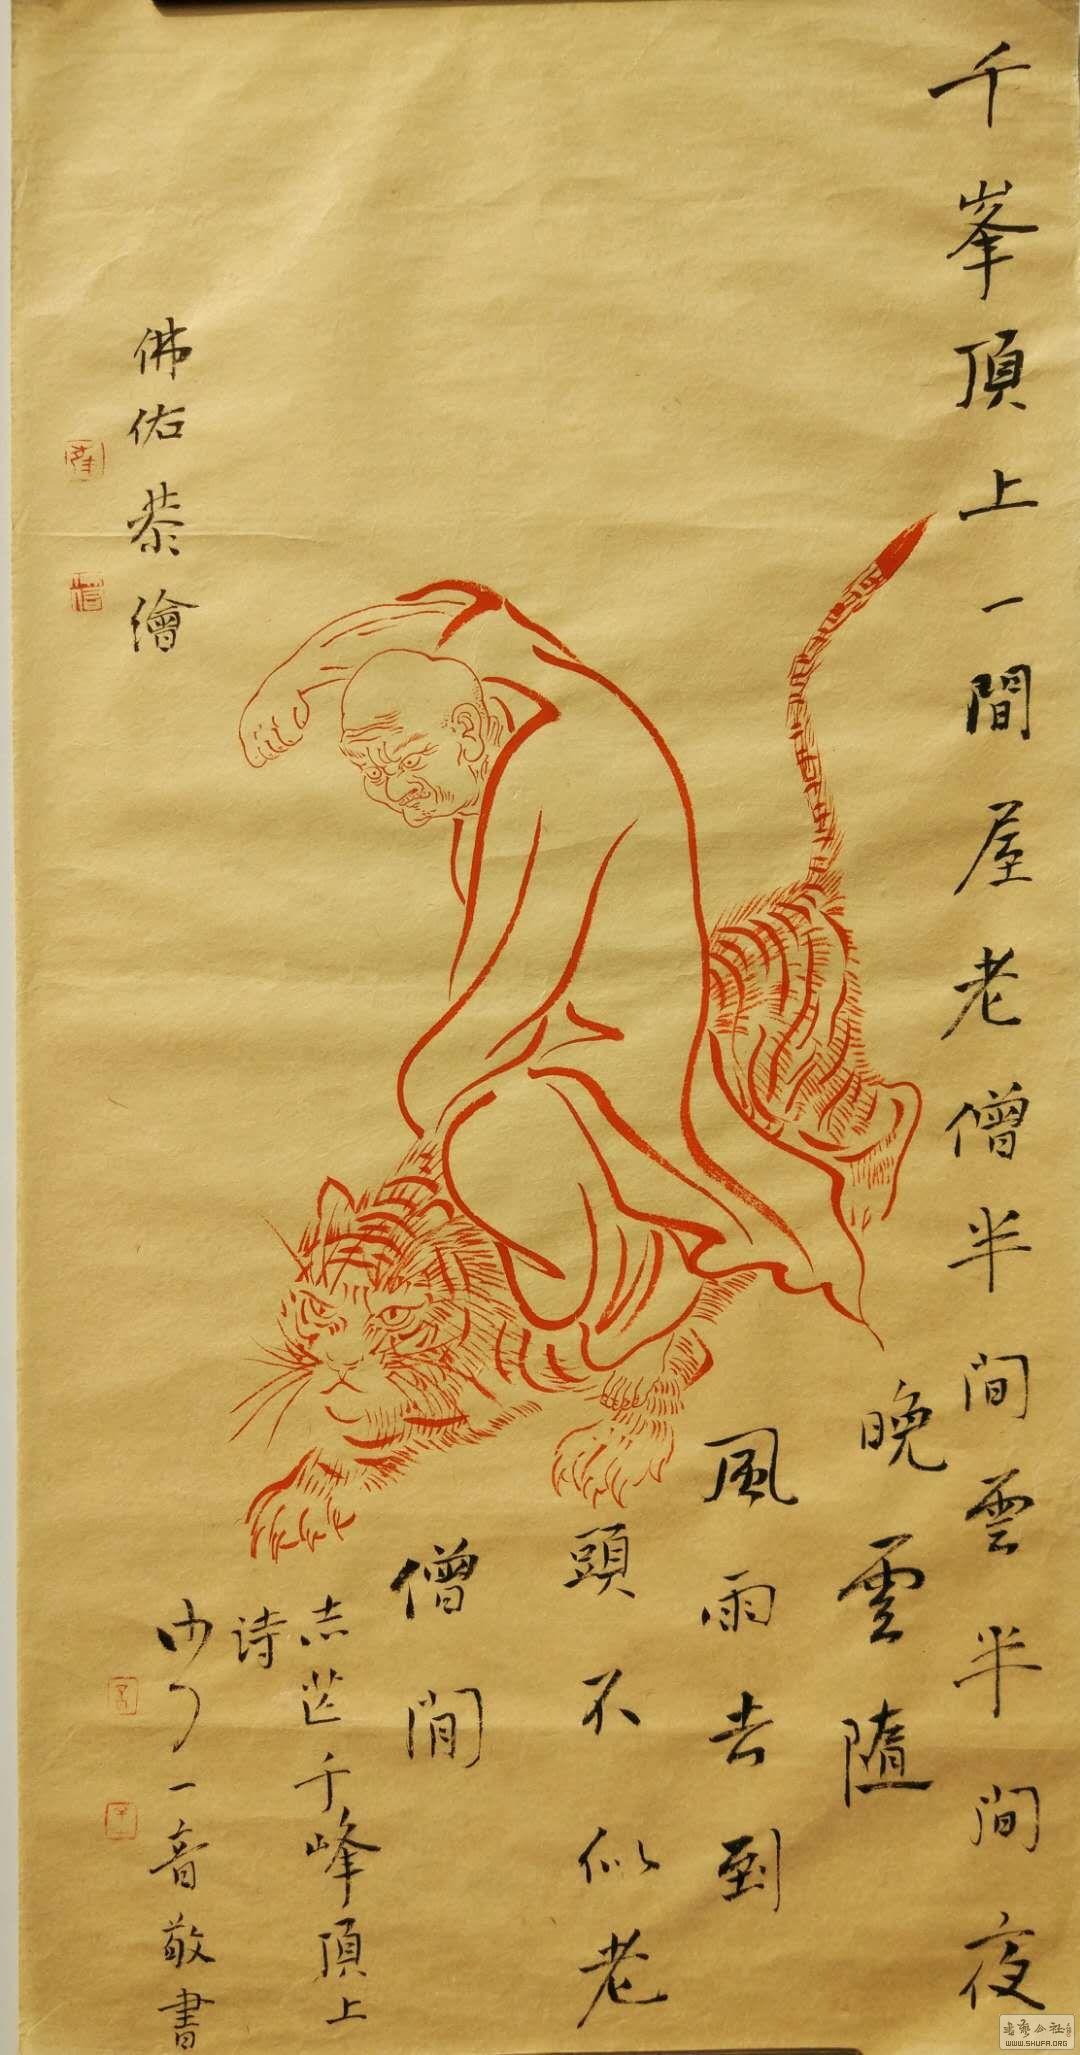 千峯頂上一間屋老僧半间雲半间夜
晚雲隨
風雨去到
頭不似老
僧閒
志芷千峰頂上
诗
沙了一音敬書
佛佑恭繪
WWW.SHUFA.ORG